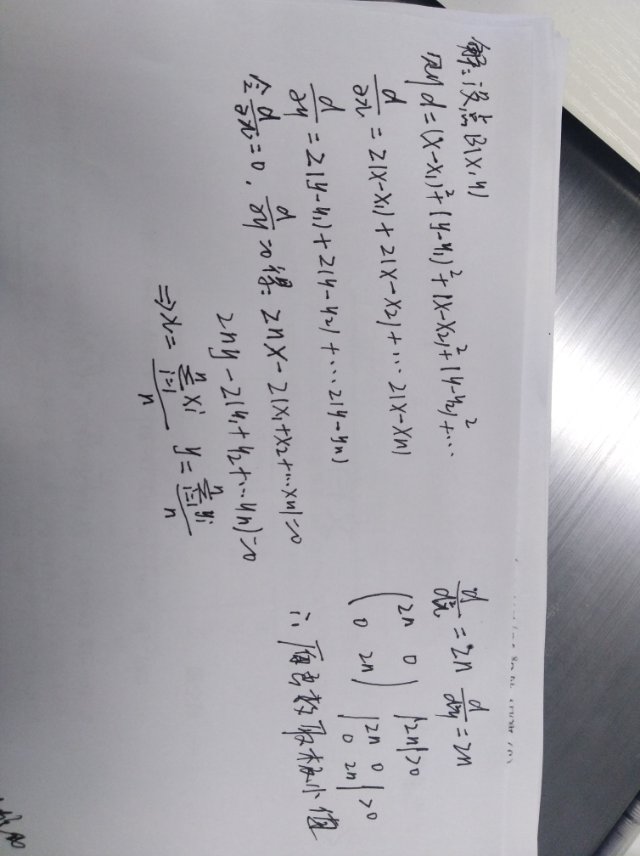 解:设点B(x,y)
则d=(x-x₁)²+(y-y₁)²+(x-x₂)²+(y-y₂)²+…
d/∂x=2(x-x₁)+2(x-x₂)+…2(x-xn)
d/∂y=2(y-y₁)+2(y-y₂)+…2(y-yn)
令d/∂x=0,d/∂y=0得:2nx-2(x₁+x₂+…xn)=0
2ny-2(y₁+y₂+…yn)=0
⇒x=∑ⁿᵢ₌₁xi/n y=∑ⁿᵢ₌₁yi/n
d/dx=2n d/dy=2n
(2n 0
0 2n)
|2n|>0
|2n 0
0 2n|>0
∴原函数取极小值